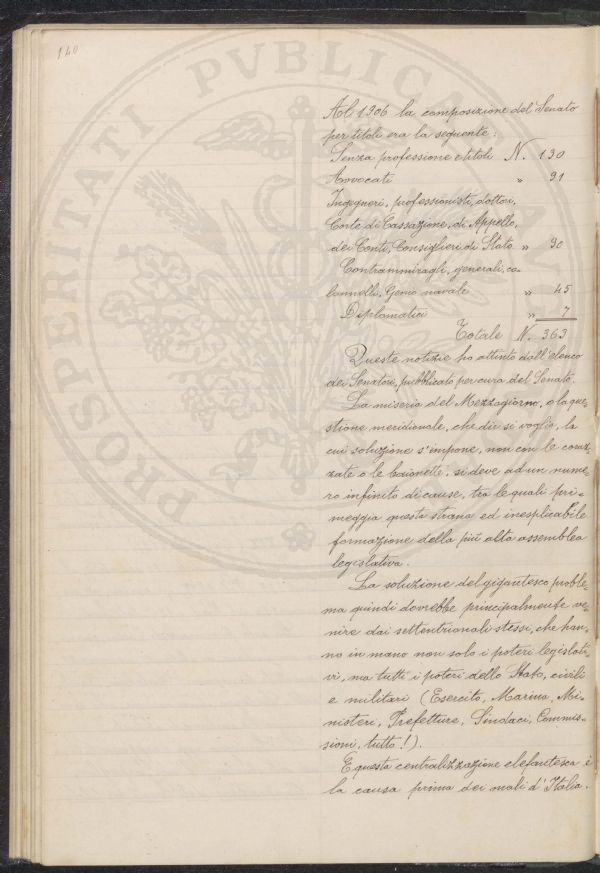 140
Al 1906 la composizione del Senato
per titoli era la seguente:
Senza professione e titoli N. 130
Avvocati " 91
Ingegneri, professionisti, dottori,
Corte di Cassazione, di Appello,
dei Conti, Consiglieri di Stato " 90
Contrammiragli, generali, co-
lonnelli, Genio navale " 45
Diplomatici " 7
Totale N. 363
Queste notizie ho attinto dall'elenco
dei Senatori, pubblicato per cura del Senato.
La miseria del Mezzogiorno, o la que-
stione meridionale, che dir si voglia, la
cui soluzione s'impone, non con le coraz-
zate o le baionette, si deve ad un nume-
ro infinito di cause, tra le quali pri-
meggia questa strana ed inesplicabile
formazione della più alta assemblea
legislativa.
La soluzione del gigantesco proble-
ma quindi dovrebbe principalmente ve-
nire dai settentrionali stessi, che han-
no in mano non solo i poteri legislati-
vi, ma tutti i poteri dello Stato, civili
e militari (Esercito, Marina, Mi-
nisteri, Prefetture, Sindaci, Commis-
sioni, tutto!).
E questa centralizzazione elefantesca è
la causa prima dei mali d'Italia.
PROSPERITATI PVBLICAE